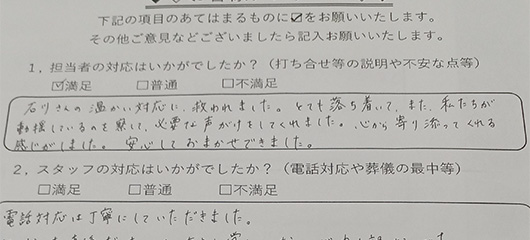 下記の項目のあてはまるものに☑をお願いいたします。
その他ご意見などございましたら記入お願いいたします。
1，担当者の対応はいかがでしたか？（打ち合せ等の説明や不安な点等）
☑満足　□普通　□不満足
石川さんの温かい対応に、救われました。とても落ち着いて、また、私たちが
動揺しているのを察して、必要な声がけをしてくれました。心から寄り添ってくれる
感じがしました。安心しておまかせできました。
2，スタッフの対応はいかがでしたか？（電話対応や葬儀の最中等）
□満足　□普通　□不満足
電話対応は丁寧にしていただきました。